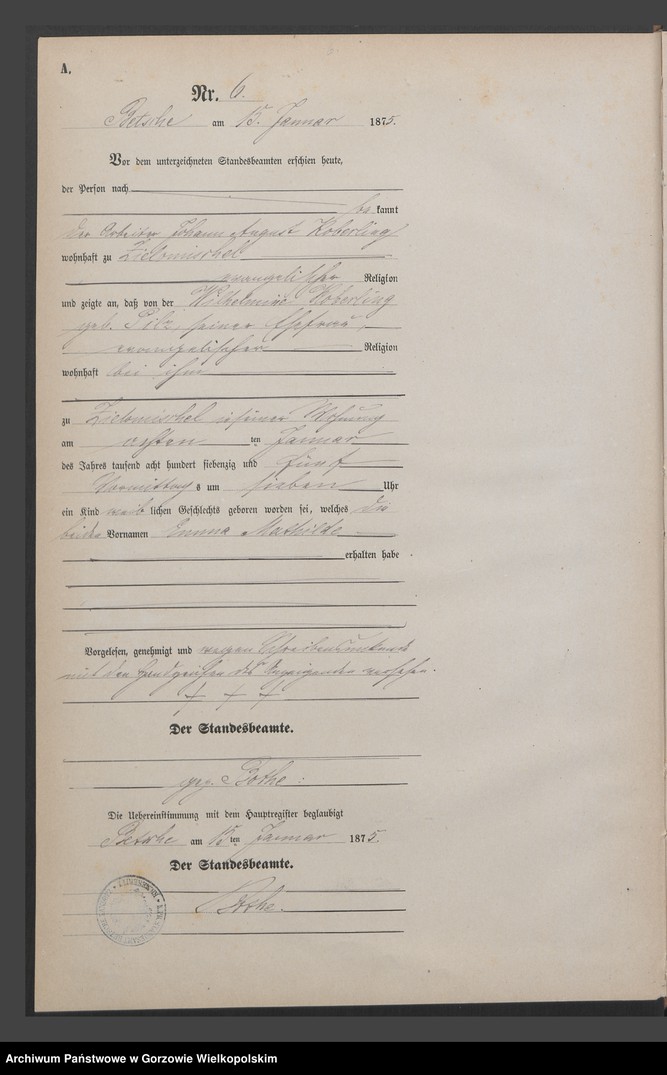 A.
Nr. 6.
Betsche am 15. Januar 1875.
Vor dem unterzeichneten Standesbeamten erschien heute,
der Person nach
be kannt
der Arbeiter Johann August Koberling
wohnhaft zu Zielomischel
evangelischer Religion
und zeigte an, daß von der Wilhelmine Koberling
geb. Pilz, seiner Ehefrau,
evangelischer Religion
wohnhaft bei ihm
zu Zielomischel in seiner Wohnung
am ersten ten Januar
des Jahres tausend acht hundert siebenzig und fünf
Vormittag s um sieben Uhr
ein Kind weib lichen Geschlechts geboren worden sei, welches die
beiden Vornamen Emma Mathilde
erhalten habe
Vorgelesen, genehmigt und wegen Schreibensunkunde
mit den Handzeichen des Anzeigenden versehen.
+ + +
Der Standesbeamte.
gez. Bothe.
Die Uebereinstimmung mit dem Hauptregister beglaubigt
Betsche am 15 ten Januar 1875.
Der Standesbeamte.
Bothe.
Archiwum Państwowe w Gorzowie Wielkopolskim